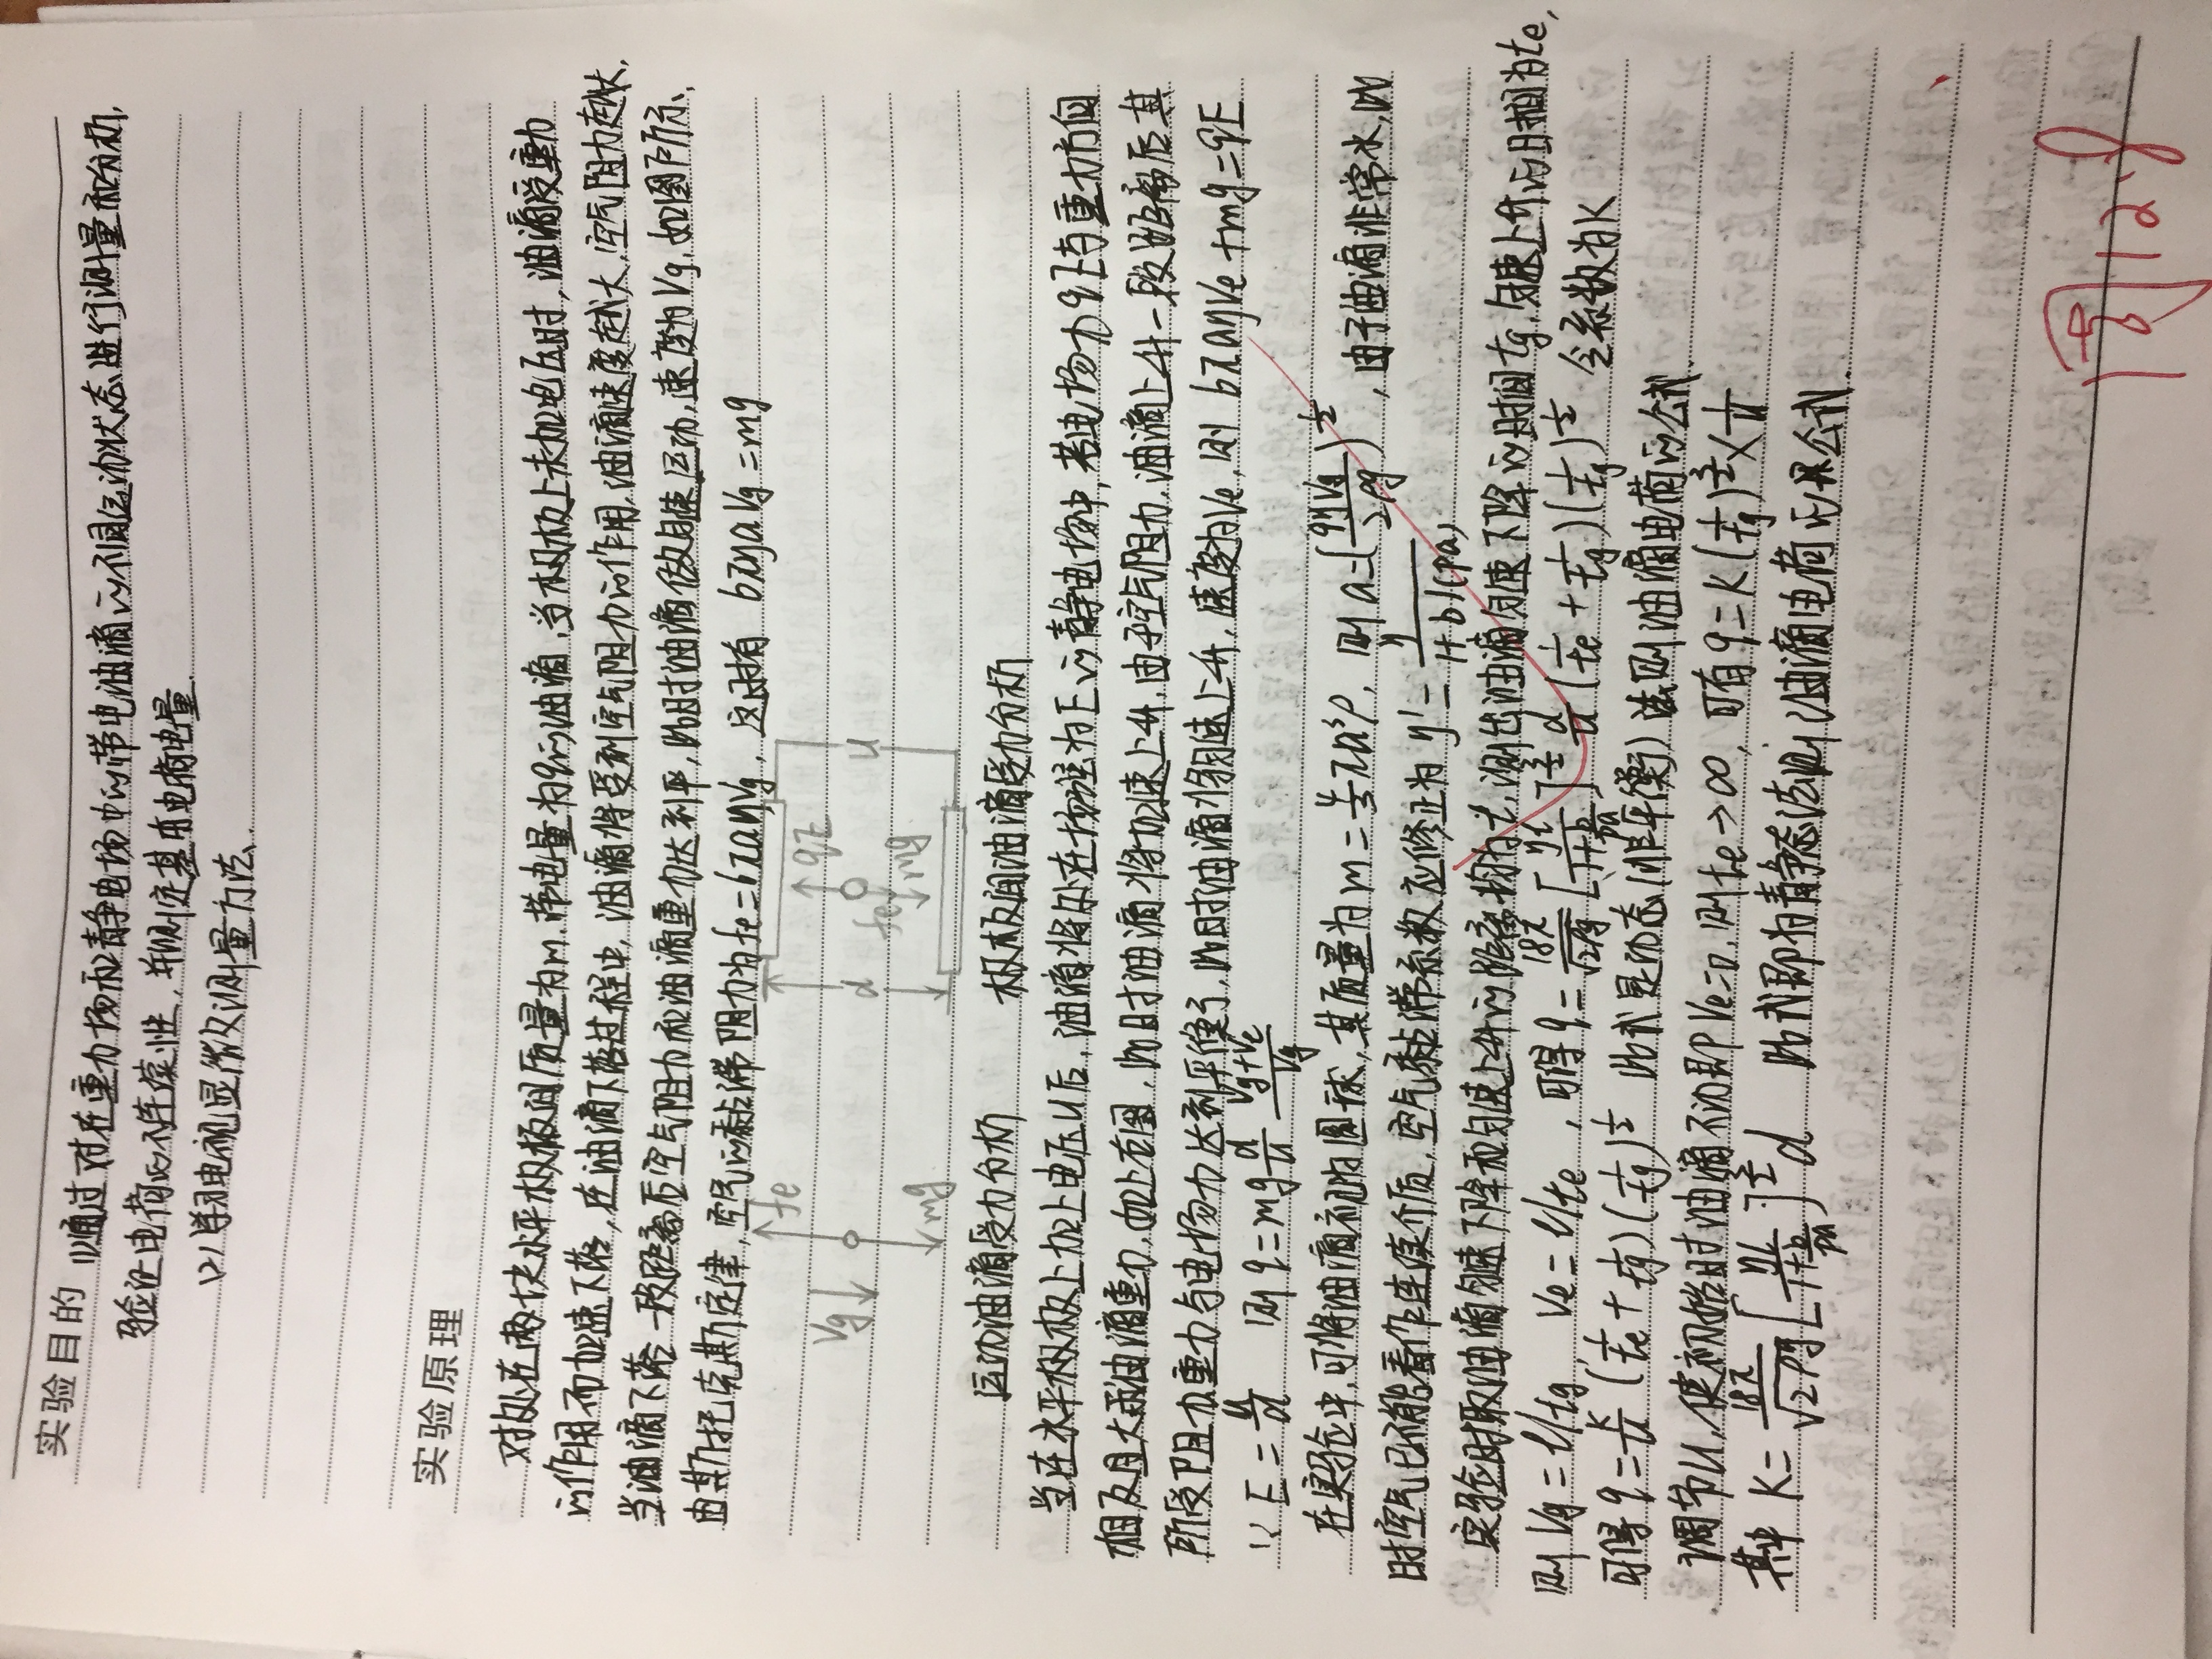 实验目的 (1)通过对在重力场和静电场中的带电油滴的不同运动状态进行测量和分析,
验证电荷的不连续性,并测定基本电荷电量.
(2)学习电视显微仪测量方法.
实验原理
对处在两块水平极板间质量为m.带电量为q的油滴,当极板上未加电压时,油滴受重力
的作用而加速下落,在油滴下落过程中,油滴将受到空气阻力的作用,油滴速度越大,空气阻力越大,
当油滴下落一段距离后空气阻力和油滴重力达到平,此时油滴做匀速运动,速度为Vg,如图所示,
由斯托克斯定律,空气的黏滞阻力为fe=6πaηVg,这时有 6πηaVg=mg
Vg fe mg d qE fe mg u
运动油滴受力分析 极板间油滴受力分析
当在水平极板上加上电压U后,油滴将处在场强为E的静电场中,若电场力qE与重力方向
相反且大于油滴重力,如上右图,此时油滴将加速上升,由于空气阻力,油滴上升一段距离后其
所受阻力重力与电场力达到平衡了,此时油滴将匀速上升,速度为Ve,则 6πaηVe+mg=qE
∵E=u/d 则q=mg d/u (Vg+Ve)/Vg
在实验中,可将油滴视为圆球,其质量为m=4/3πa³ρ,则a=(9ηVg/2ρg)^½,由于油滴非常小,此
时空气已不能看作连续介质,空气黏滞系数应修正为η'=η/(1+b/(pa)
实验时取油滴匀速下降和匀速上升的距离均为l,测出油滴匀速下降的时间tg,匀速上升的时间为te,
则Vg=l/tg, Ve=l/te,可得q=18π/√2ρg [ηl/(1+b/pa)]^3/2 d/u (1/te+1/tg)(1/tg)^½ 令系数为K
可得q=K/u(1/te+1/tg)(1/tg)^½ 此式是动态(非平衡)法测油滴电荷的公式
调节U,使初始时油滴不动即Ve=0,则te→∞,可有q=K(1/tg)^3/2×1/u
其中K=18π/√2ρg [ηl/(1+b/pa)]^3/2 d 此式即为静态法测油滴电荷的公式.
12.8